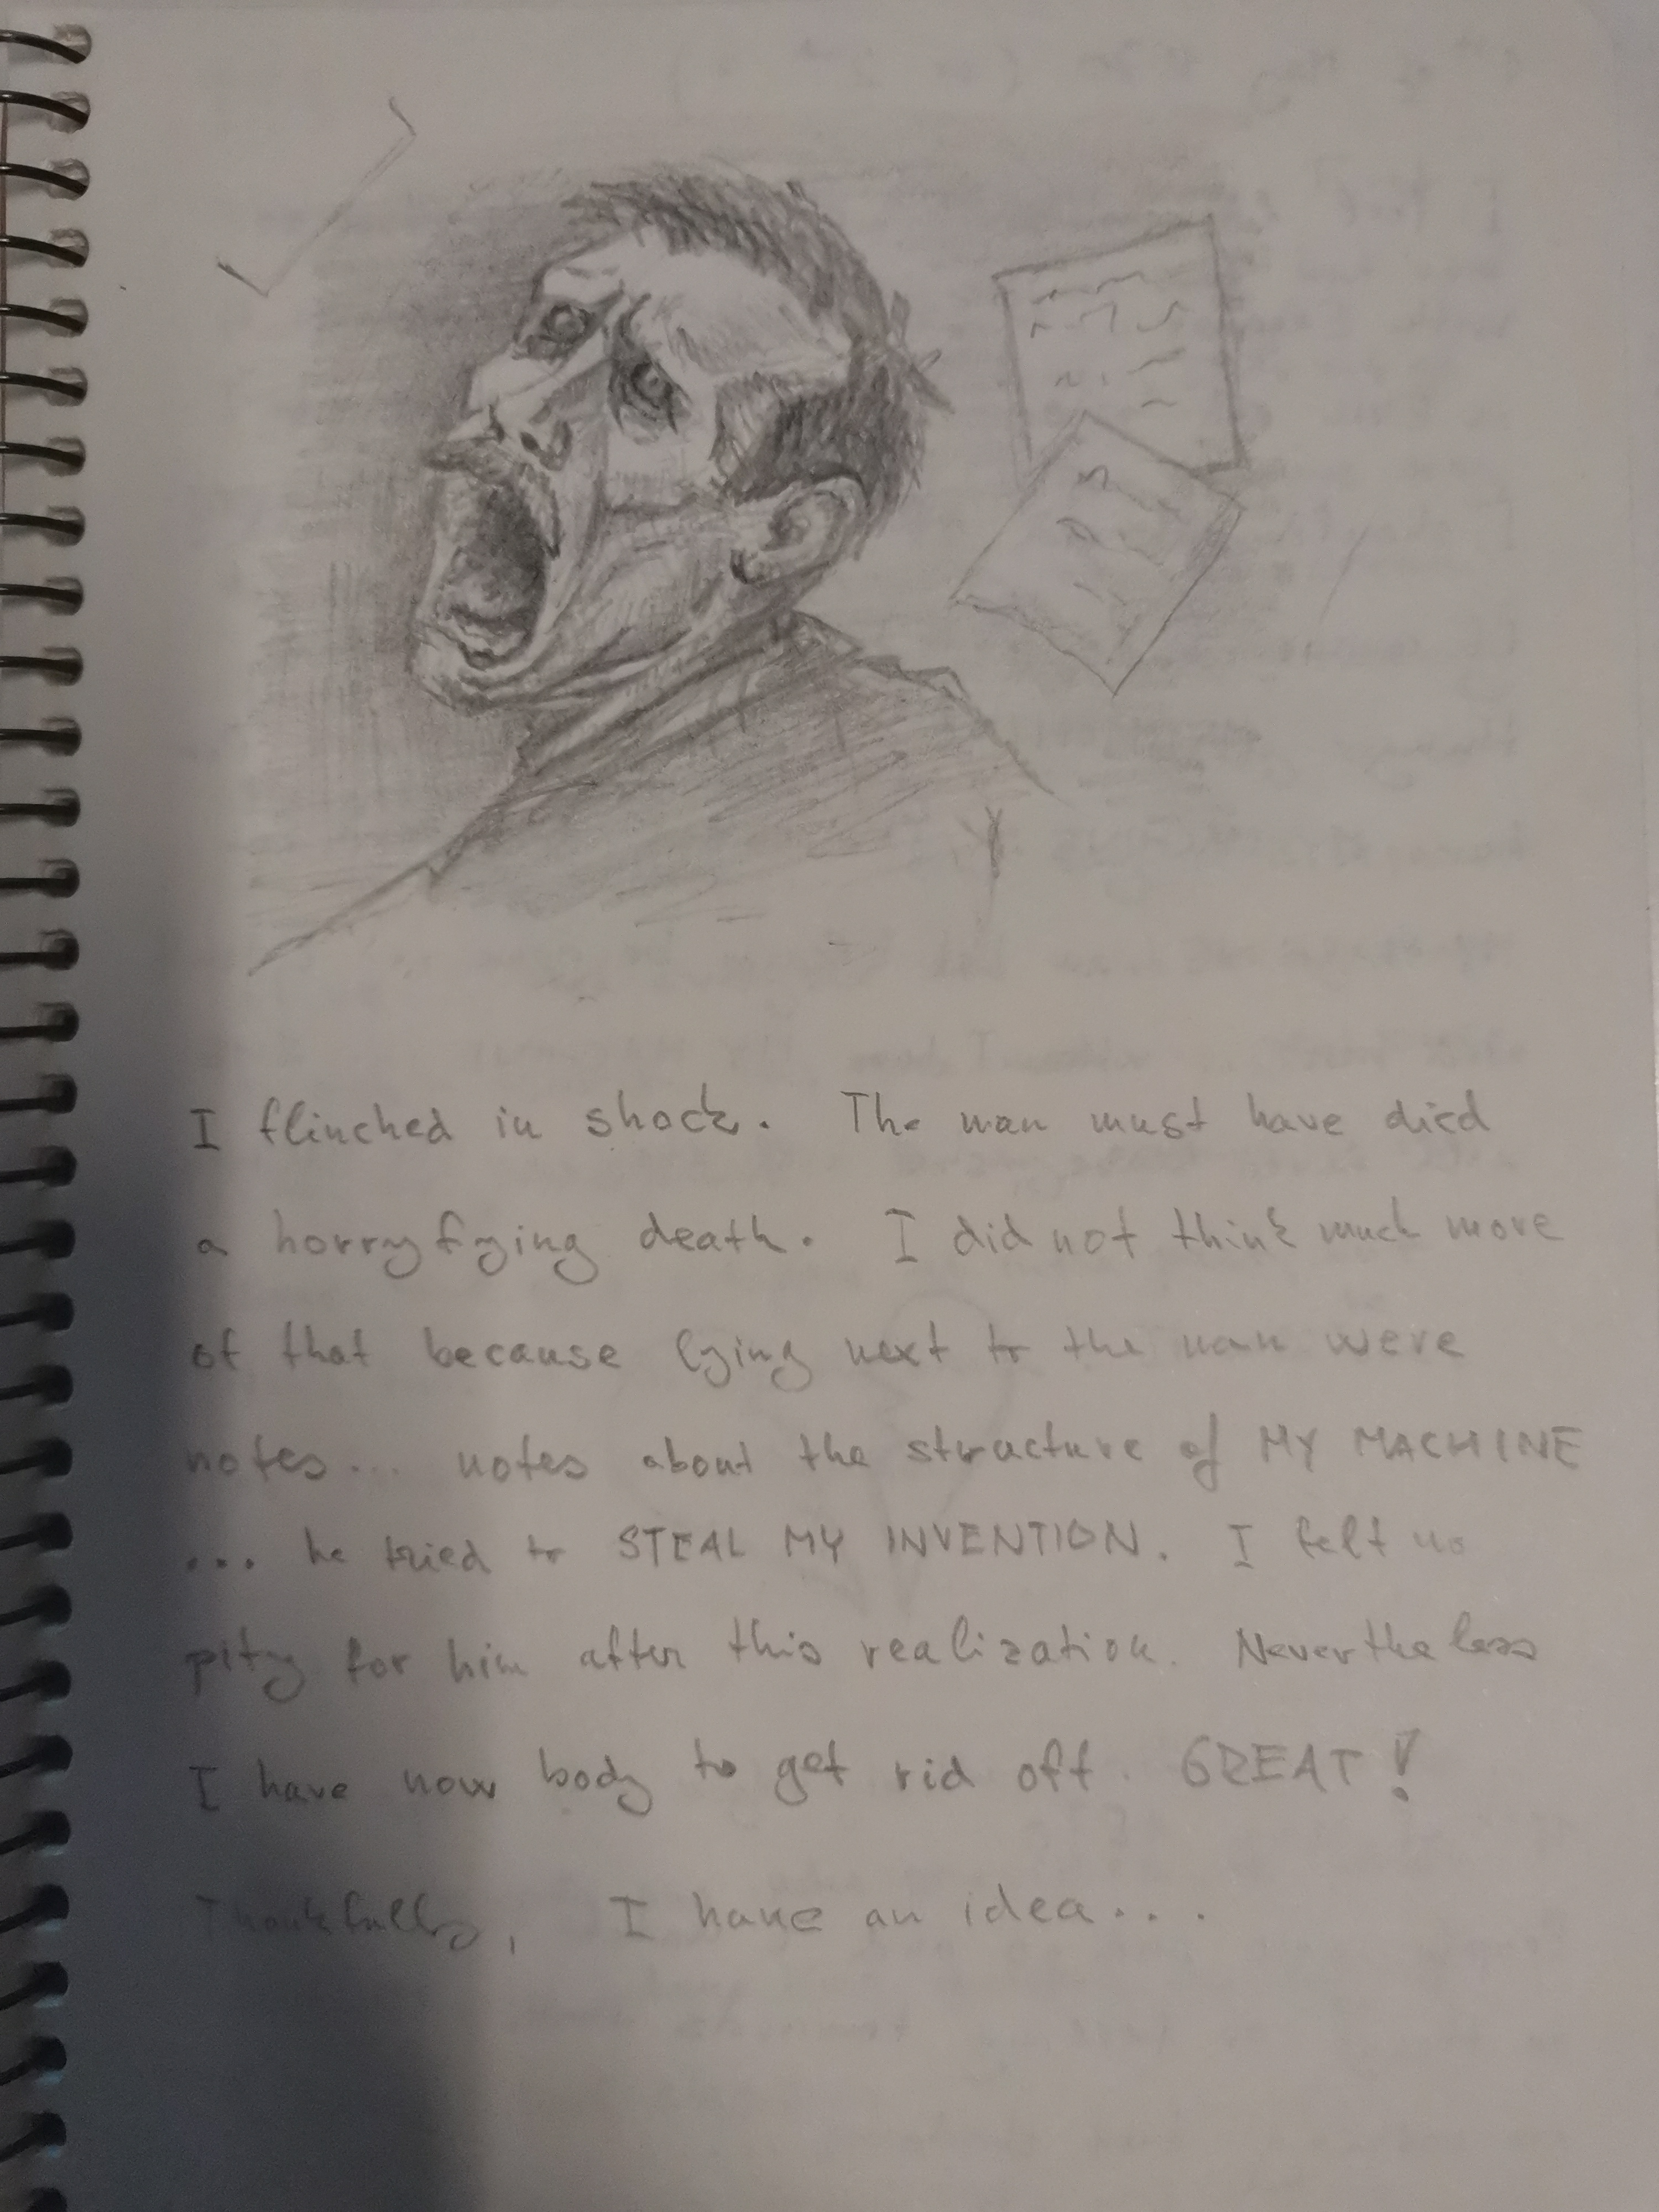 I flinched in shock. The man must have died
a horryfying death. I did not think much more
of that because lying next to the man were
notes... notes about the structure of MY MACHINE
... he tried to STEAL MY INVENTION. I felt no
pity for him after this realization. Nevertheless
I have now body to get rid off. GREAT!
Thankfully, I have an idea...